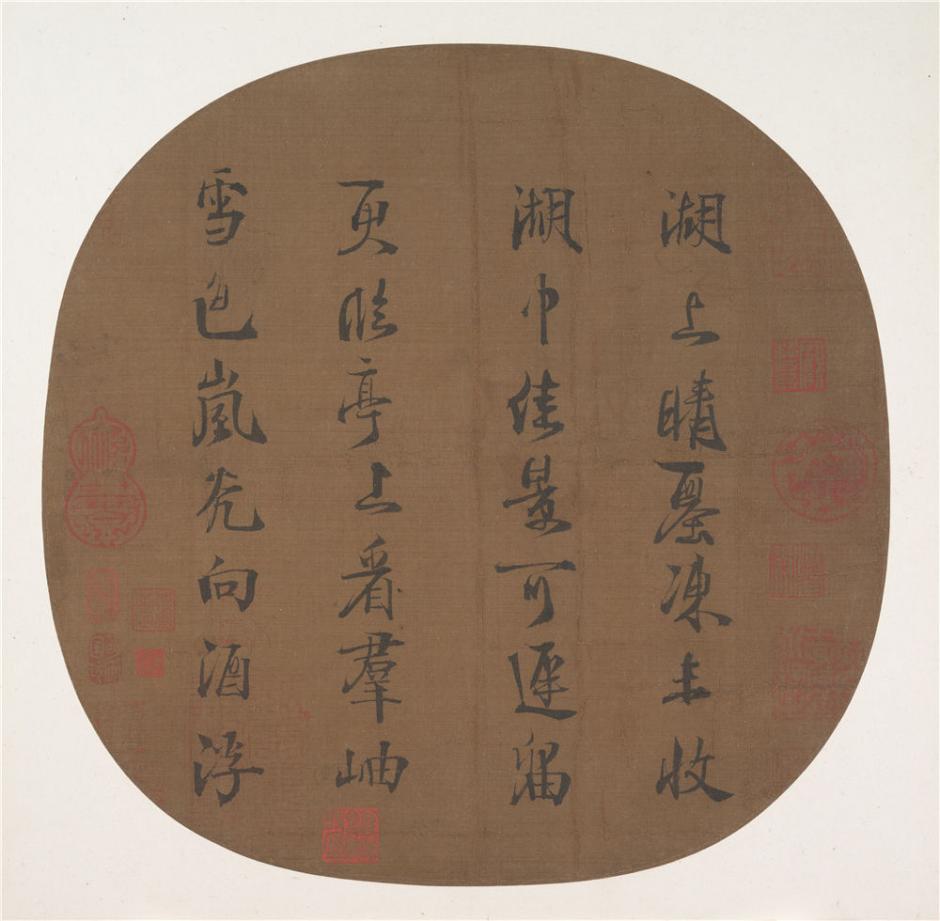 湖上晴雲凍未收
湖中佳景可遲留
更臨亭上看羣岫
雪色嵐光向酒浮